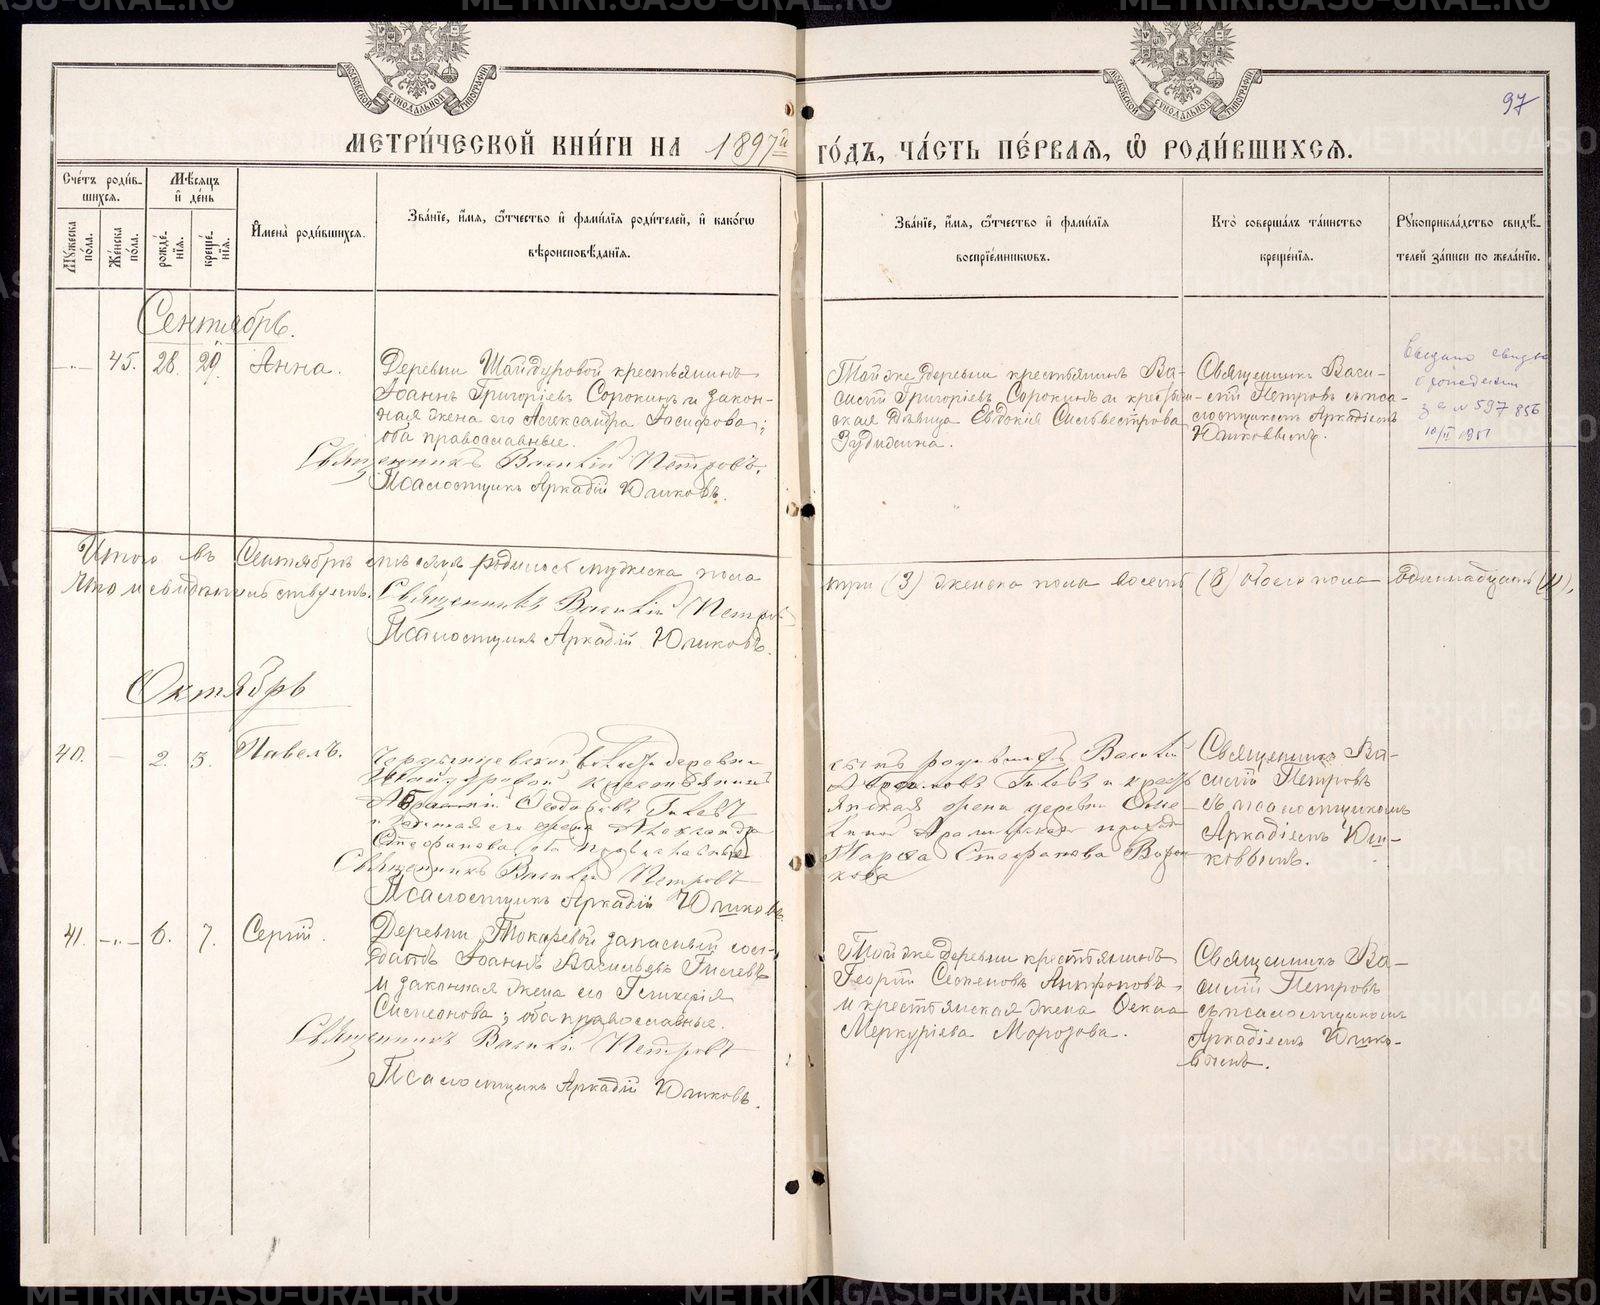 97
МЕТРИ́ЧЕСКОЙ КНИ́ГИ НА 1897й ГО́ДЪ, ЧА́СТЬ ПЕ́РВАЯ, Ѽ РОДИ́ВШИХСЯ.
Сче́тъ роди́в-
шихся.
Мѣсяцъ
и҆ де́нь
Мꙋжеска по́ла.
Же́нска по́ла.
рожде́-нїя.
креще́-нїя.
И҆мена̀ роди́вшихся.
Зва́нїе, и҆́мя, ѻ҆́тчество и҆ фами́лїя роди́телей, и҆ како́гѡ
вѣроисповѣ́данїя.
Зва́нїе, и҆́мя, ѻ҆́тчество и҆ фами́лїя
воспрїе́мникѡвъ.
Кто̀ соверша́лъ та́инство
креще́нїя.
Рꙋкоприкла́дство свидѣ́-
телей за́писи по жела́нїю.
Сентябрь.
45. 28. 29. Анна.
Деревни Шайдуровой крестьянинъ
Іоаннъ Григоріевъ Сорокинъ и закон-
ная жена его Александра Іосифова;
оба православные.
Священникъ Василій Петровъ.
Псаломщикъ Аркадій Юшковъ.
Той же деревни крестьянинъ Ва-
силій Григоріевъ Сорокинъ и крестьян-
ская дѣвица Евдокія Сильвестрова
Зудихина.
Священникъ Васи-
лій Петровъ съ пса-
ломщикомъ Аркадіемъ
Юшковымъ.
Выдано свидет
о рождении
за № 597 856
10/II 1951
Итого въ Сентябрѣ мѣсяцѣ родилось мужеска пола три (3) женска пола восемь (8) обоего пола одиннадцать (11).
Въ томъ свидѣтельствуемъ: Священникъ Василій Петровъ
Псаломщикъ Аркадій Юшковъ.
Октябрь
40. 2. 3. Павелъ.
деревни
Шайдуровой крестьянинъ
Ѳеодоровъ
и законная его жена Александра
Стефанова, оба православные
Священникъ Василій Петровъ
Псаломщикъ Аркадій Юшковъ.
сынъ Василій
жена деревни
Марѳа Стефанова
Священникъ Ва-
силій Петровъ
съ псаломщикомъ
Аркадіемъ Юш-
ковымъ.
41. 6. 7. Сергій.
Деревни Токаревой запасный сол-
датъ Іоаннъ Васильевъ Гилевъ
и законная жена его Гликерія
Симеонова; оба православные.
Священникъ Василій Петровъ
Псаломщикъ Аркадій Юшковъ.
Той же деревни крестьянинъ
Георгій Семеновъ Антроповъ
и крестьянская жена Ѳекла
Меркуріева Морозова.
Священникъ Ва-
силій Петровъ
съ псаломщикомъ
Аркадіемъ Юшко-
вымъ.
METRIKI.GASO-URAL.RU